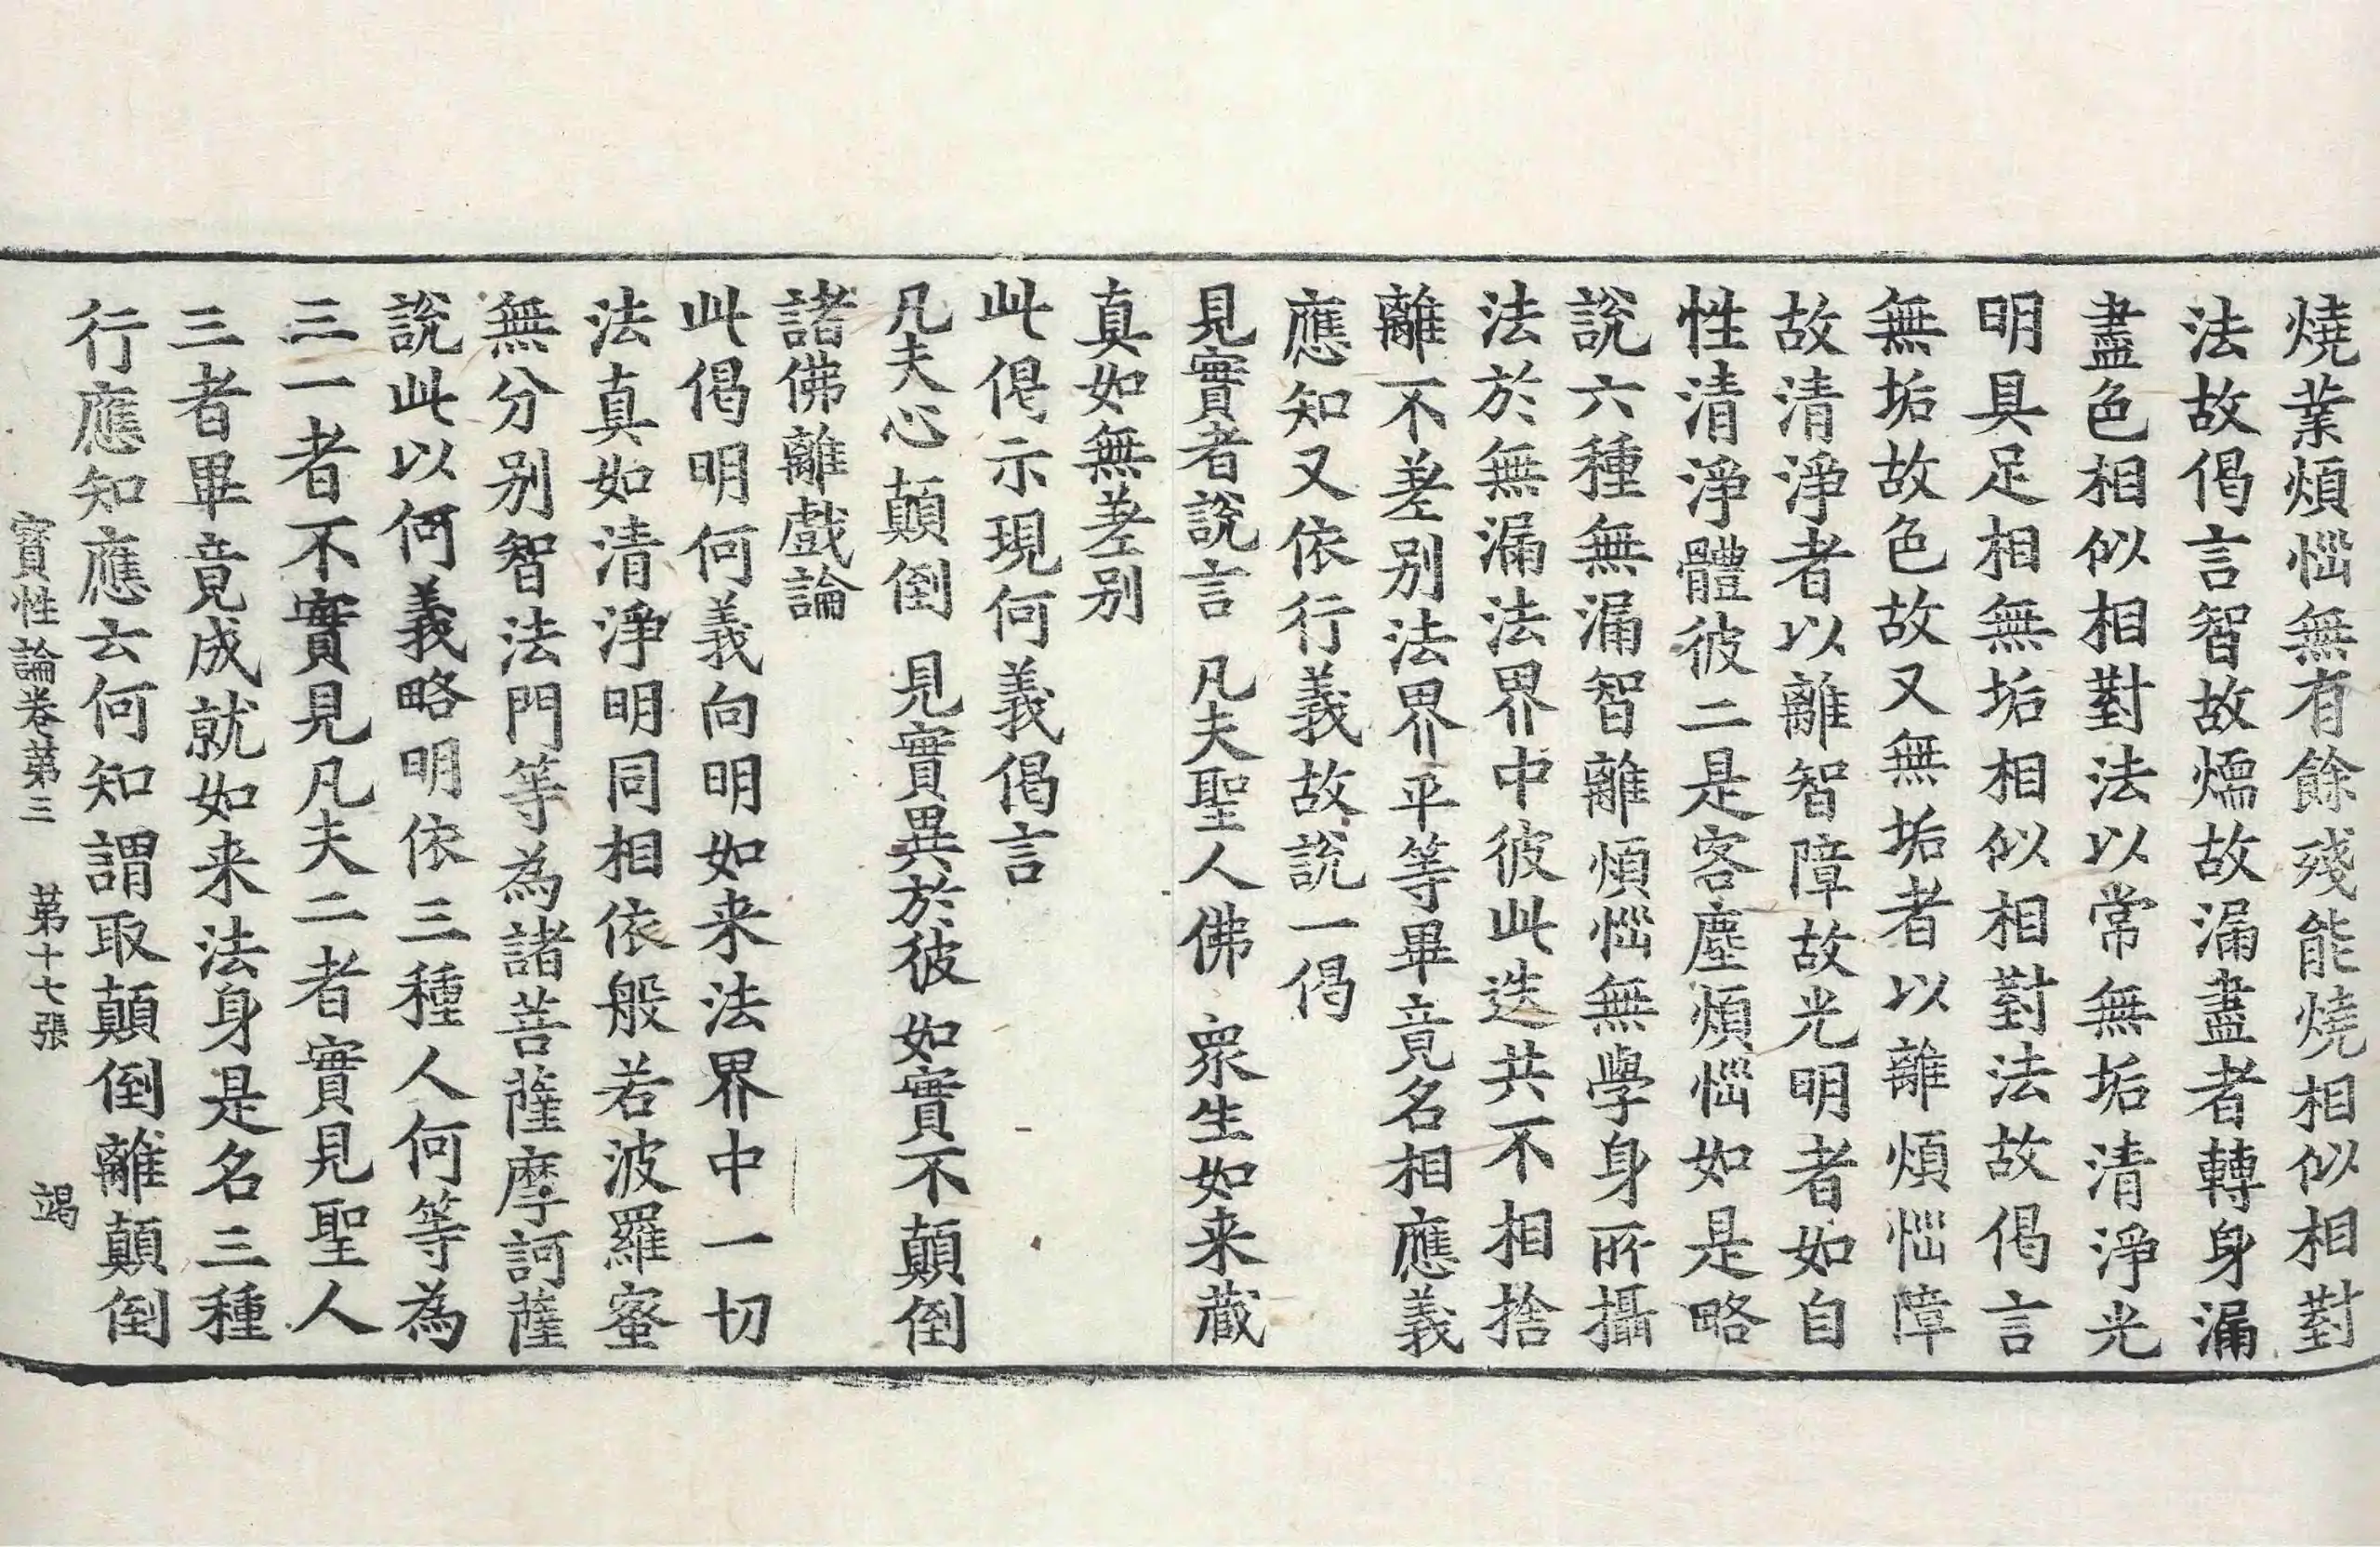 燒業煩惱無有餘殘能燒相似相對
法故偈言智故煗故漏盡者轉身漏
盡色相似相對法以常無垢清淨光
明具足相無垢相似相對法故偈言
無垢故色故又無垢者以離煩惱障
故清淨者以離智障故光明者如自
性清淨體彼二是客塵煩惱如是略
說六種無漏智離煩惱無學身所攝
法於無漏法界中彼此迭共不相捨
離不差别法界平等畢竟名相應義
應知又依行義故說一偈
見實者說言　凡夫聖人佛　衆生如来藏
真如無差别
此偈示現何義偈言
凡夫心顛倒　見實異於彼　如實不顛倒
諸佛離戲論
此偈明何義向明如来法界中一切
法真如清淨明同相依般若波羅蜜
無分别智法門等為諸菩薩摩訶薩
說此以何義略明依三種人何等為
三一者不實見凡夫二者實見聖人
三者畢竟成就如来法身是名三種
行應知應云何知謂取顛倒離顛倒
寳性論卷第三　第十七張　竭